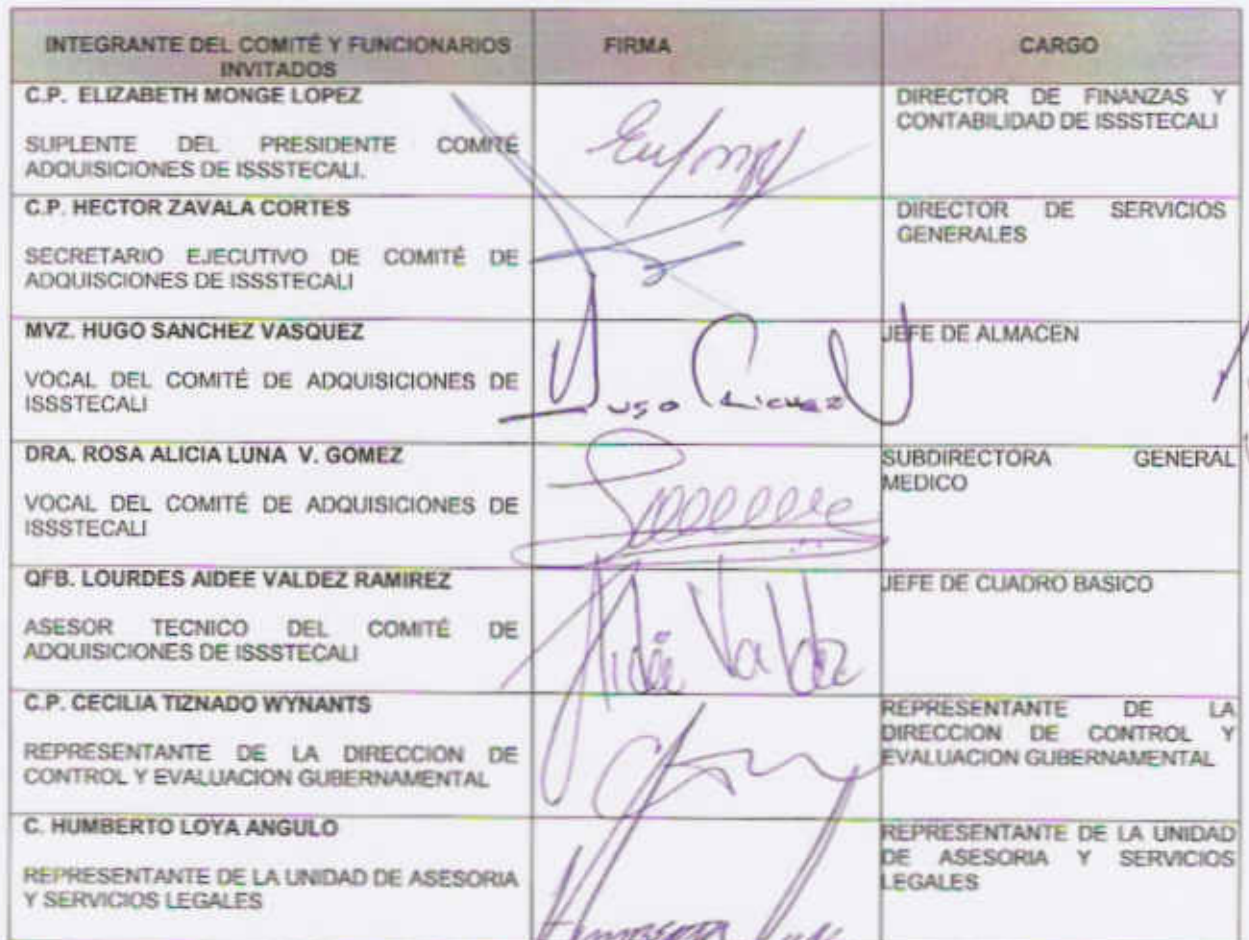 INTEGRANTE DEL COMITÉ Y FUNCIONARIOS
INVITADOS
FIRMA
CARGO
C.P. ELIZABETH MONGE LOPEZ
SUPLENTE DEL PRESIDENTE COMITÉ
ADQUISICIONES DE ISSSTECALI.
DIRECTOR DE FINANZAS Y
CONTABILIDAD DE ISSSTECALI
C.P. HECTOR ZAVALA CORTES
SECRETARIO EJECUTIVO DE COMITÉ DE
ADQUISCIONES DE ISSSTECALI
DIRECTOR DE SERVICIOS
GENERALES
MVZ. HUGO SANCHEZ VASQUEZ
VOCAL DEL COMITÉ DE ADQUISICIONES DE
ISSSTECALI
JEFE DE ALMACEN
DRA. ROSA ALICIA LUNA V. GOMEZ
VOCAL DEL COMITÉ DE ADQUISICIONES DE
ISSSTECALI
SUBDIRECTORA GENERAL
MEDICO
QFB. LOURDES AIDEE VALDEZ RAMIREZ
ASESOR TECNICO DEL COMITÉ DE
ADQUISICIONES DE ISSSTECALI
Aidée Valdez
JEFE DE CUADRO BASICO
C.P. CECILIA TIZNADO WYNANTS
REPRESENTANTE DE LA DIRECCION DE
CONTROL Y EVALUACION GUBERNAMENTAL
REPRESENTANTE DE LA
DIRECCION DE CONTROL Y
EVALUACION GUBERNAMENTAL
C. HUMBERTO LOYA ANGULO
REPRESENTANTE DE LA UNIDAD DE ASESORIA
Y SERVICIOS LEGALES
REPRESENTANTE DE LA UNIDAD
DE ASESORIA Y SERVICIOS
LEGALES